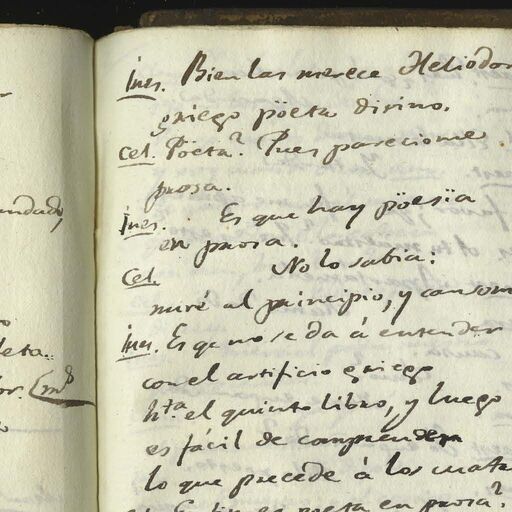 ndado,
leta..
or. Emº
Ines. Bien las merece Heliodor
griego pöeta divino.
Cel. Pöeta? Pues pareciome
prosa.
Ines. Es que hay pöesïa
en prosa.
Cel. No lo sabia:
miré al principio, y cansom
Ines. Es qe. no se da á entender
con el artificio griego
hta. el quinto libro, y luego
es fácil de comprender
lo que precede á los cuatr
es poeta en prosa?